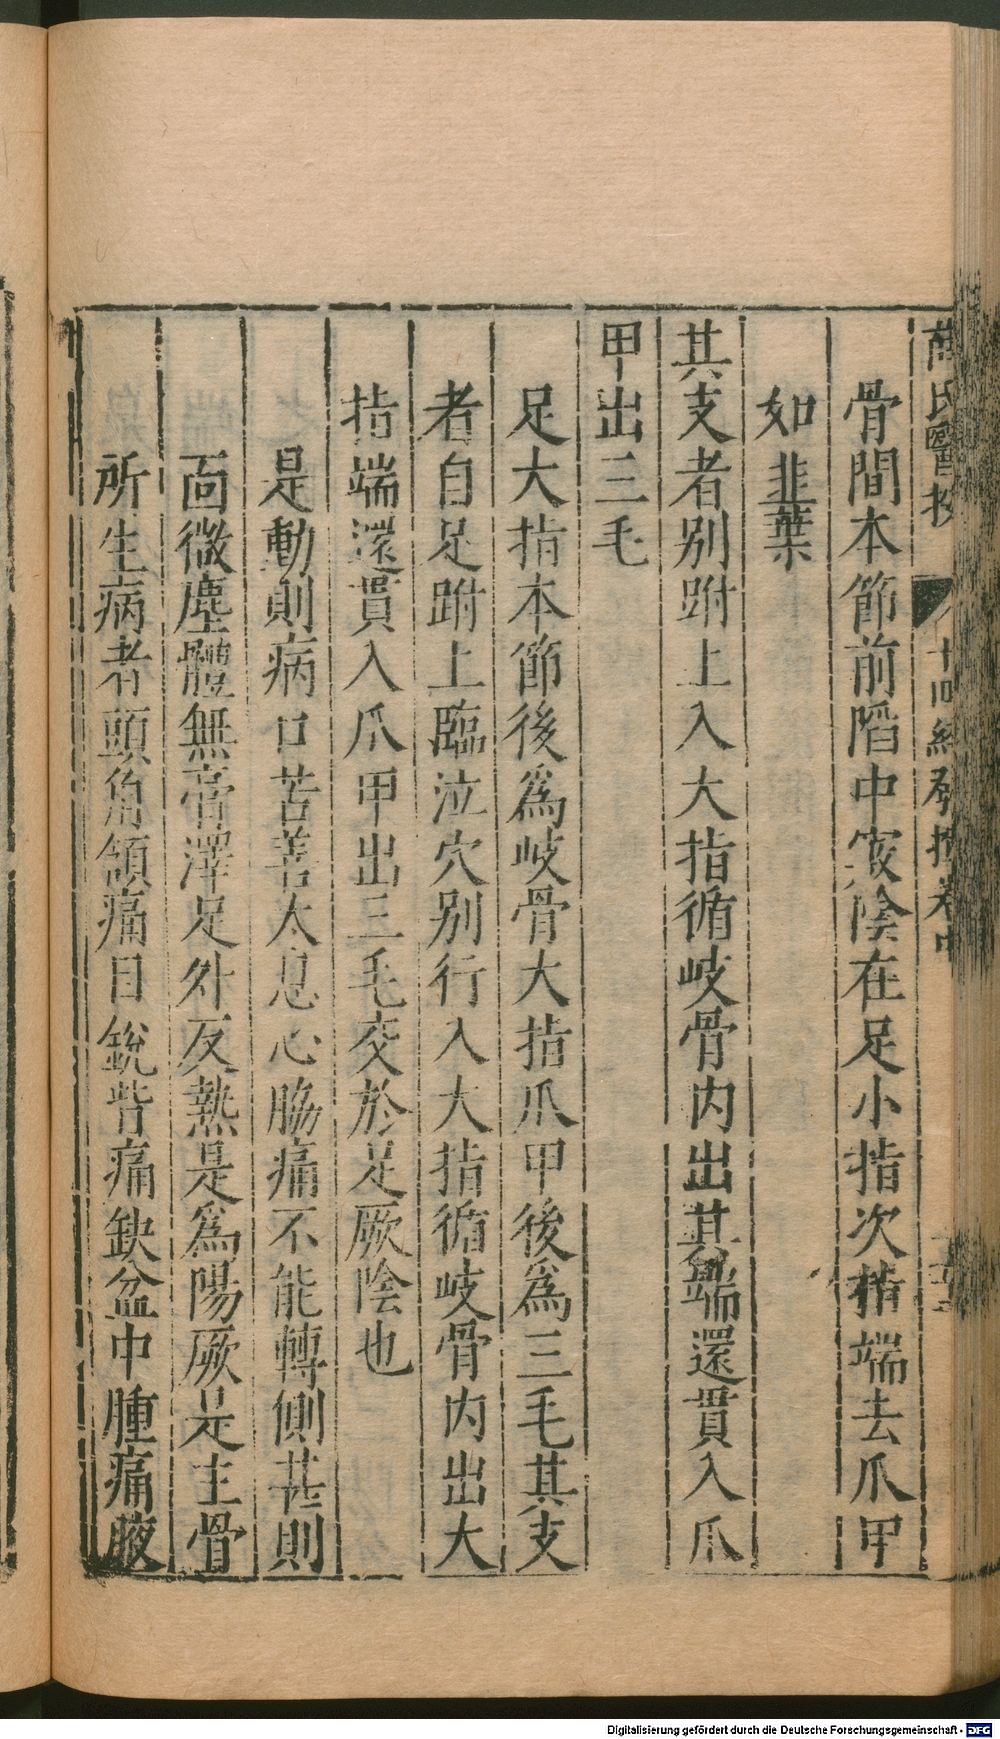 十四經發揮卷中
骨間本節前陷中竅陰在足小指次指端去爪甲
如韭葉
其支者別跗上入大指循岐骨內出其端還貫入爪
甲出三毛
足大指本節後爲岐骨大指爪甲後爲三毛其支
者自足跗上臨泣穴別行入大指循岐骨內出大
指端還貫入爪甲出三毛交於足厥陰也
是動則病口苦善太息心脇痛不能轉側甚則
面微塵體無膏澤足外反熱是爲陽厥是主骨
所生病者頭角頷痛目銳眥痛缺盆中腫痛腋
Digitalisierung gefördert durch die Deutsche Forschungsgemeinschaft - DFG